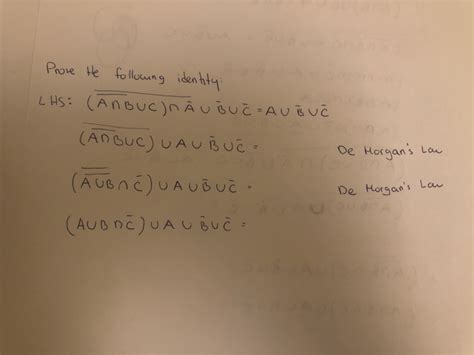 Prove the following identity:
LHS: (A̅∩̅B∪C)∩A̅ ∪ B̅ ∪ C̅ = A ∪ B̅ ∪ C̅
(A∩B∪C) ∪ A ∪ B̅ ∪ C̅ = De Morgan's Law
(A∪B∩C̅) ∪ A ∪ B̅ ∪ C̅ = De Morgan's Law
(A∪B∩C̅) ∪ A ∪ B̅ ∪ C̅ =